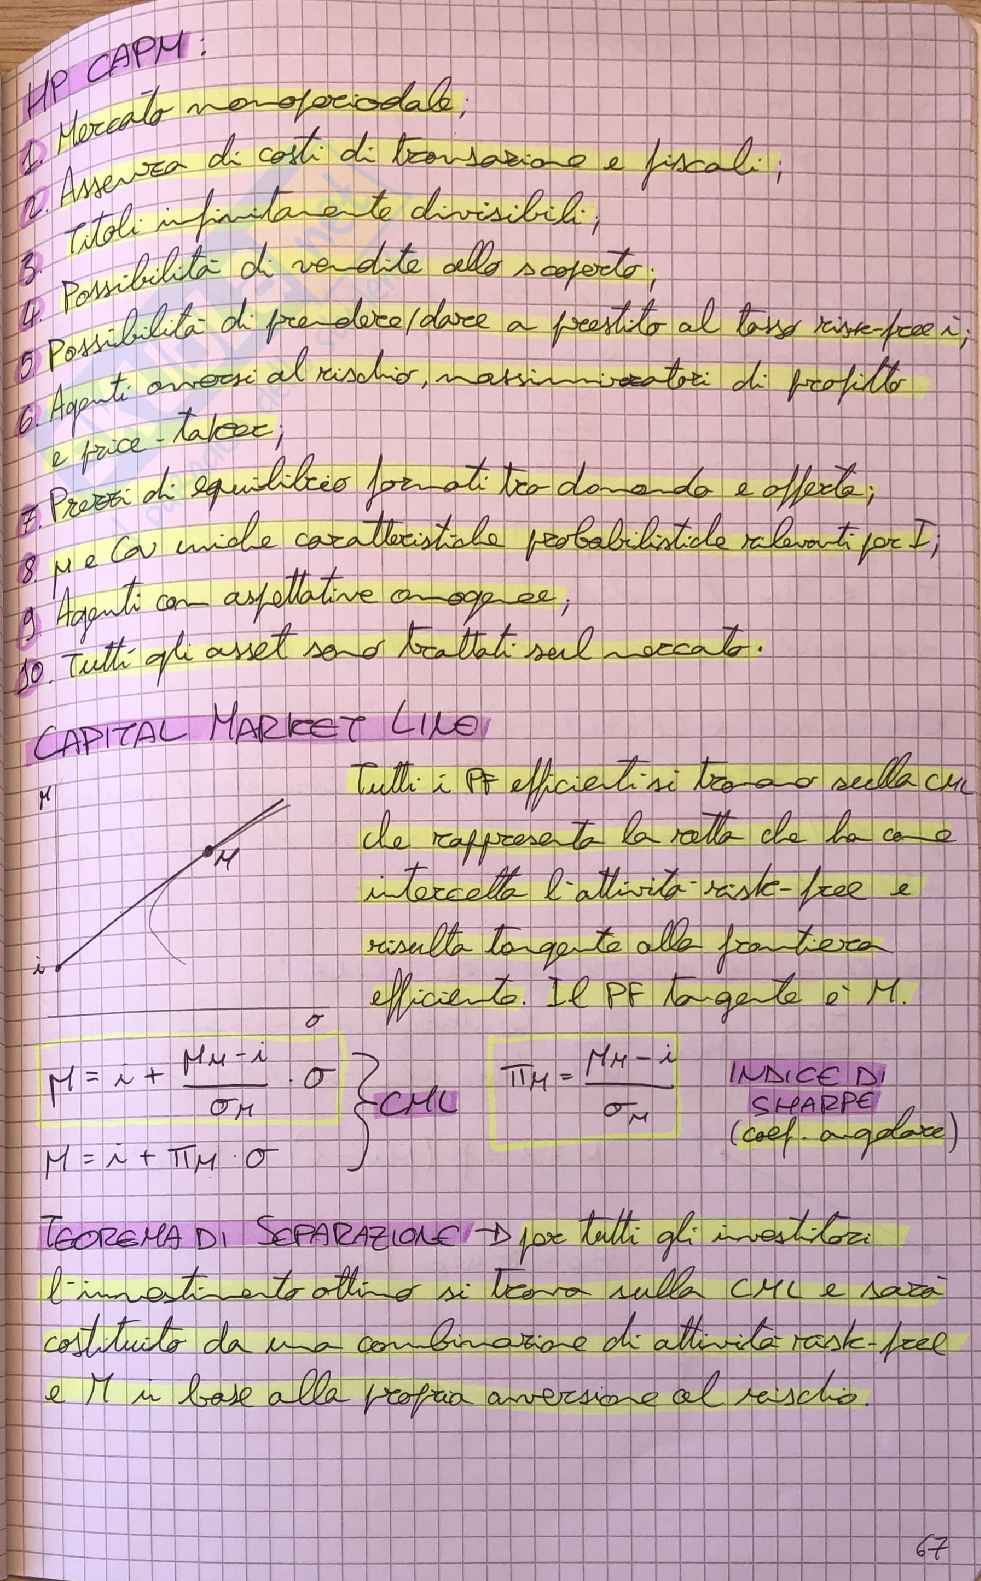 HP CAPM:
1. Mercato monoperiodale;
2. Assenza di costi di transazione e fiscali;
3. Titoli infinitamente divisibili;
4. Possibilità di vendite allo scoperto;
5 Possibilità di prendere/dare a prestito al tasso risk-free i;
6. Agenti avversi al rischio, massimizzatori di profitto
e price-taker;
7. Prezzi di equilibrio formati tra domanda e offerta;
8. μ e Cov uniche caratteristiche probabilistiche rilevanti per I;
9. Agenti con aspettative omogenee;
10. Tutti gli asset sono trattati sul mercato.
CAPITAL MARKET LINE
μ
M
i
σ
Tutti i PF efficienti si trovano sulla CML
che rappresenta la retta che ha come
intercetta l'attività risk-free e
risulta tangente alla frontiera
efficiente. Il PF tangente è M.
μ = i + (μM - i)/σM · σ
μ = i + πM · σ
CML
πM = (μM - i)/σM
INDICE DI
SHARPE
(coef. angolare)
TEOREMA DI SEPARAZIONE → per tutti gli investitori
l'investimento ottimo si trova sulla CML e sarà
costituito da una combinazione di attività risk-free
e M in base alla propria avversione al rischio.
67